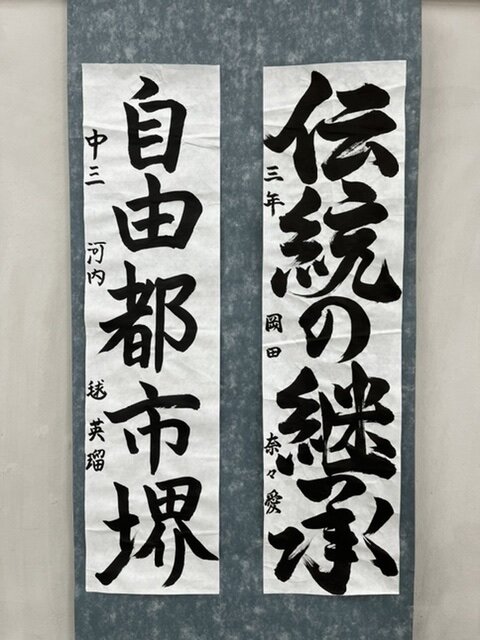 伝統の継承
三年 岡田 奈々愛
自由都市堺
中三 河内 毬英瑠